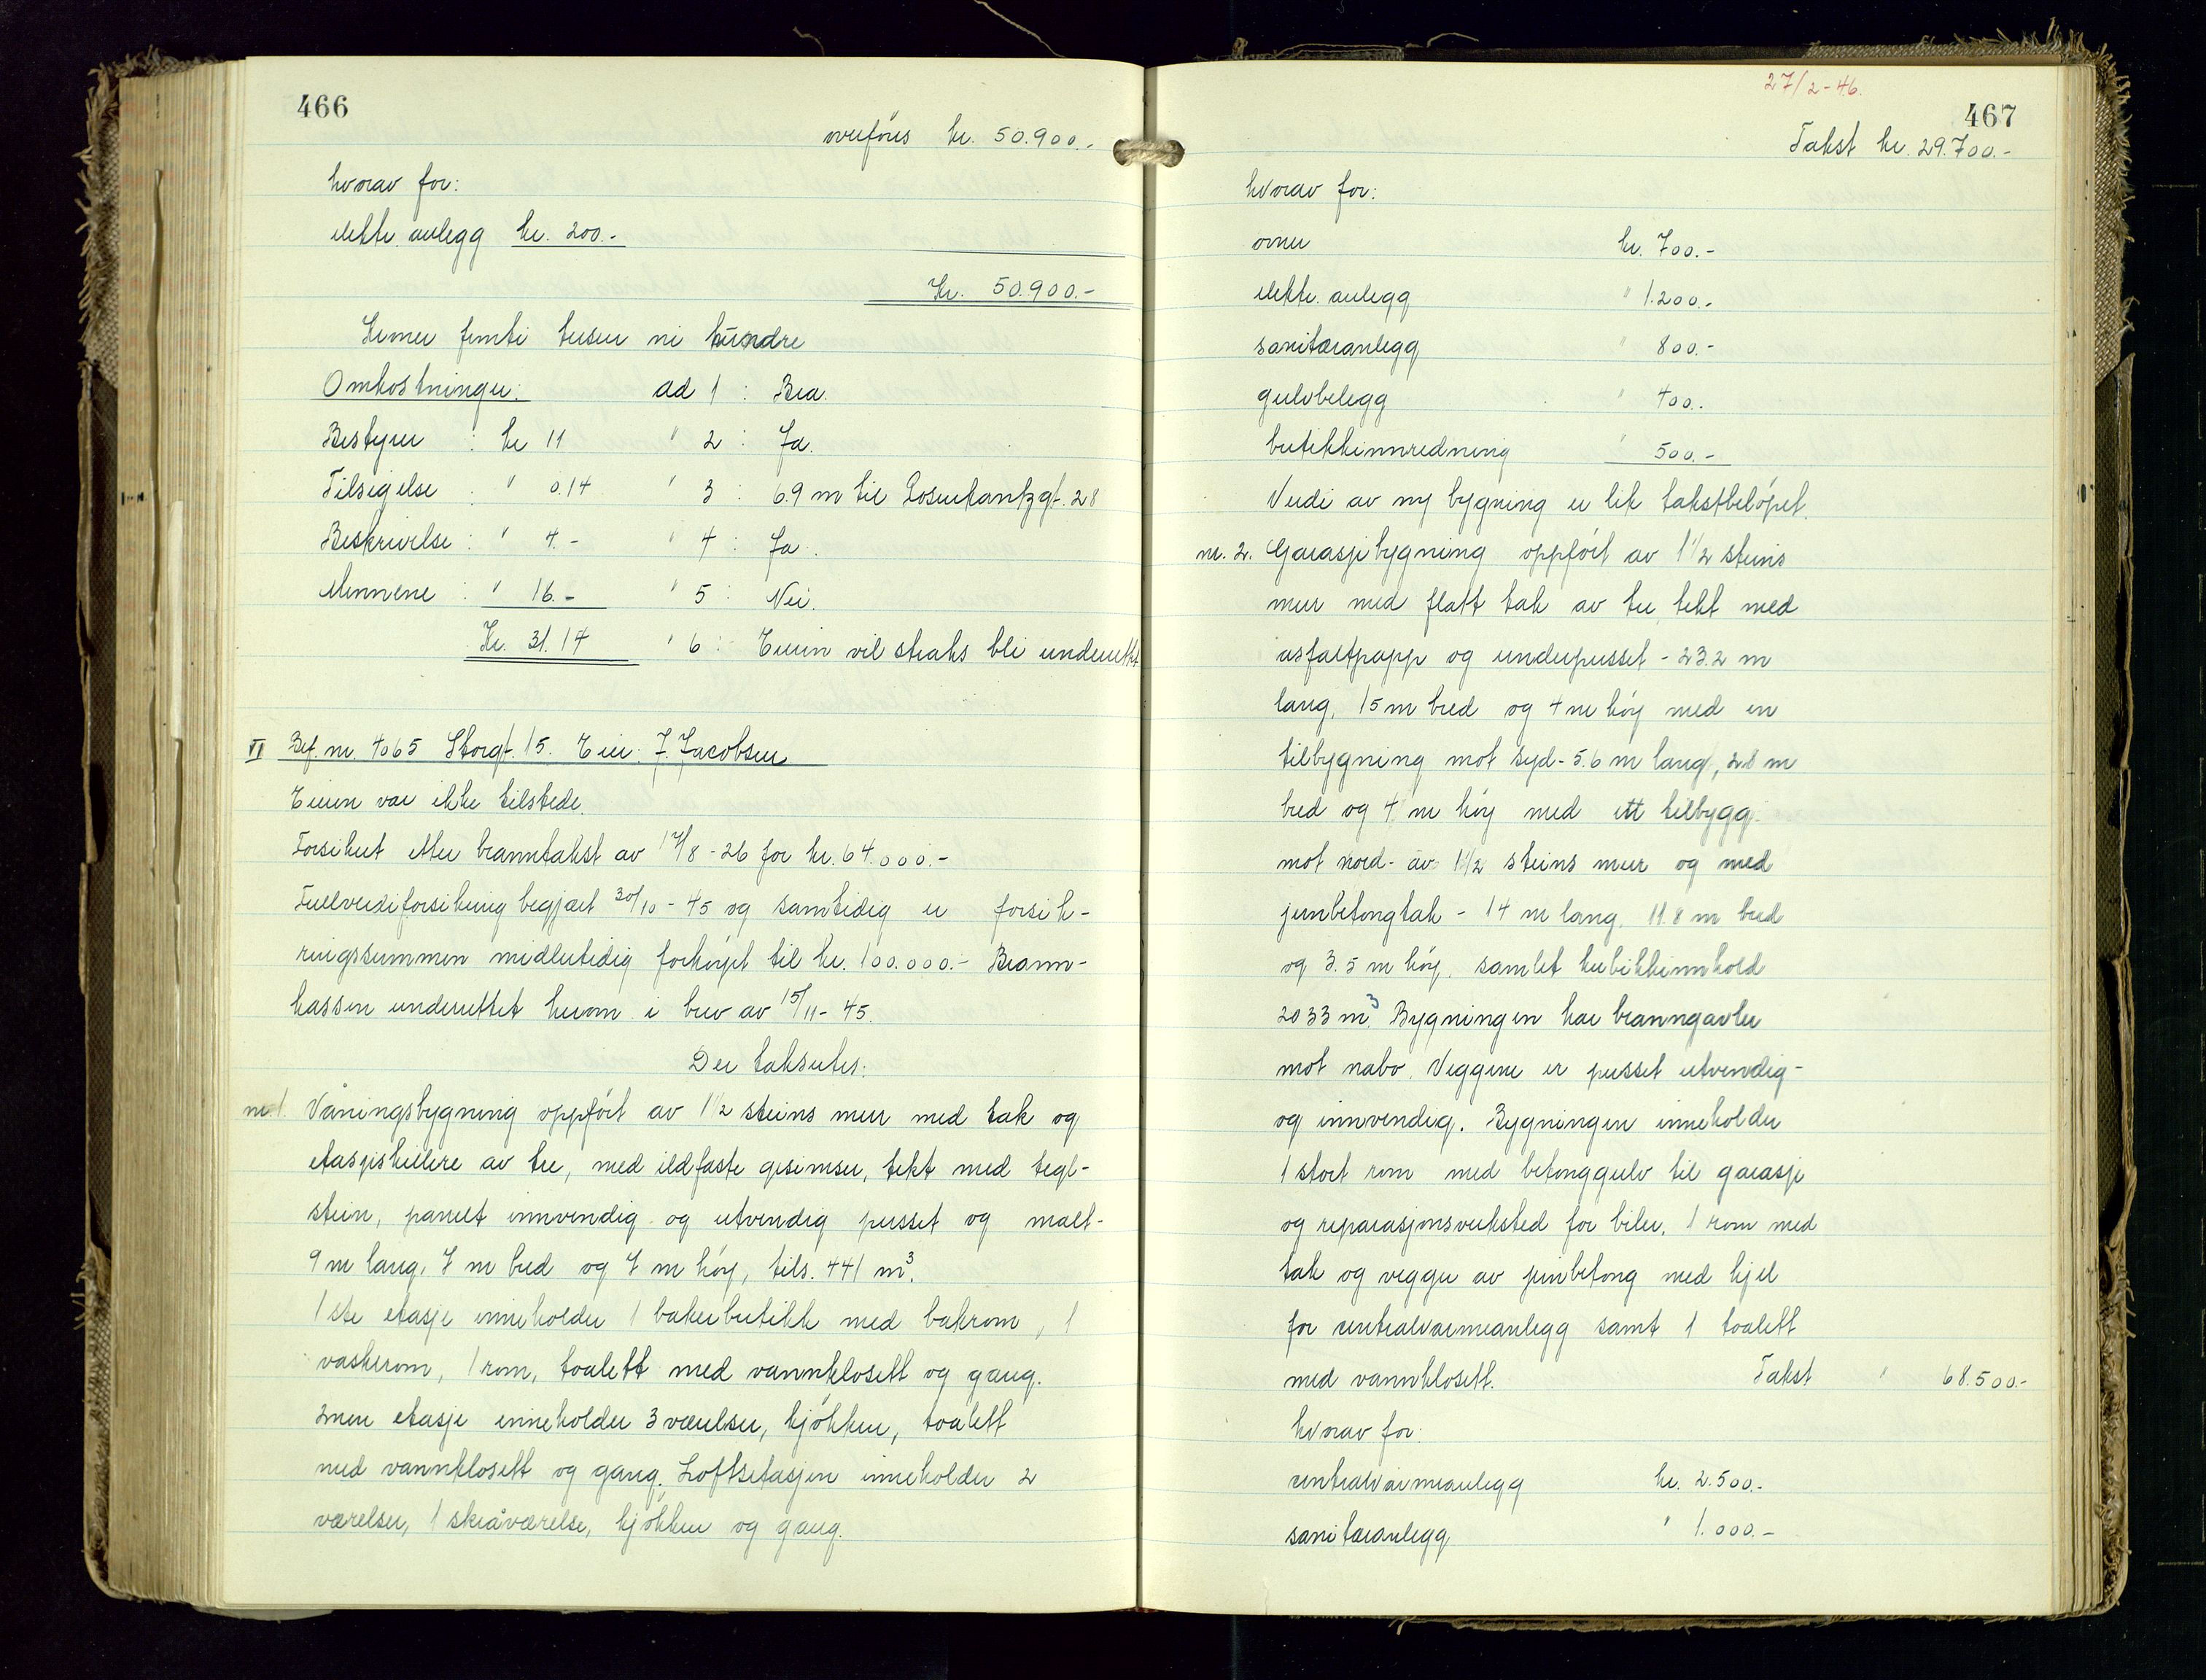 466
overføres kr. 50.900.-
hvorav for:
elektr. anlegg kr. 200.-
Kr. 50.900.-
Kroner femti tusen ni hundre
Omkostninger: ad 1 : Bra.
Bestyrer : kr 11 " 2 : Ja.
Tilsigelse : " 0.14 " 3 : 6.9 m til Rosenkrantzgt. 28
Beskrivelse : " 4.- " 4 : Ja.
Mennene : " 16.- " 5 : Nei.
Kr. 31.14 " 6 : Eieren vil straks bli underrettet
VI Brf. nr. 4065 Storgt. 15. Eier: J. Jacobsen
Eieren var ikke tilstede.
Forsikret etter branntakst av 17/8-26 for kr. 64.000.-
Fullverdiforsikring begjært 30/10-45 og samtidig er forsik-
ringssummen midlertidig forhøyet til kr. 100.000.- Brann-
kassen underrettet herom i brev av 15/11-45.
Der takseres:
nr. 1. Våningsbygning oppført av 1 1/2 steins mur med tak og
etasjeskillere av tre, med ildfaste gesimser, tekt med tegl-
stein, panelt innvendig og utvendig pusset og malt-
9 m lang, 7 m bred og 7 m høy, tils. 441 m³.
1ste etasje inneholder 1 bakerbutikk med bakrom, 1
vaskerom, 1 rom, toalett med vannklosett og gang.
2nen etasje inneholder 3 værelser, kjøkken, toalett
med vannklosett og gang. Loftsetasjen inneholder 2
værelser, 1 skråværelse, kjøkken og gang.
27/2-46.
467
Takst kr. 29.700.-
hvorav for:
ovner kr. 700.-
elektr. anlegg " 1.200.-
sanitæranlegg " 800.-
gulvbelegg " 400.-
butikkinnredning " 500.-
Verdi av ny bygning er lik takstbeløpet.
nr. 2. Garasjebygning oppført av 1 1/2 steins
mur med flatt tak av tre, tekt med
asfaltpapp og underpusset - 23.2 m
lang, 15 m bred og 4 m høy med en
tilbygning mot syd - 5.6 m lang, 2.8 m
bred og 4 m høy med ett tilbygg
mot nord - av 1 1/2 steins mur og med
jernbetongtak - 14 m lang, 11.8 m bred
og 3.5 m høy, samlet kubikkinnhold
2033 m³. Bygningen har branngavler
mot nabo. Veggene er pusset utvendig-
og innvendig. Bygningen inneholder
1 stort rom med betonggulv til garasje
og reparasjonsverksted for biler, 1 rom med
tak og vegger av jernbetong med kjel
for sentralvarmeanlegg samt 1 toalett
med vannklosett. Takst " 68.500.-
hvorav for:
sentralvarmeanlegg kr. 2.500.-
sanitæranlegg " 1.000.-